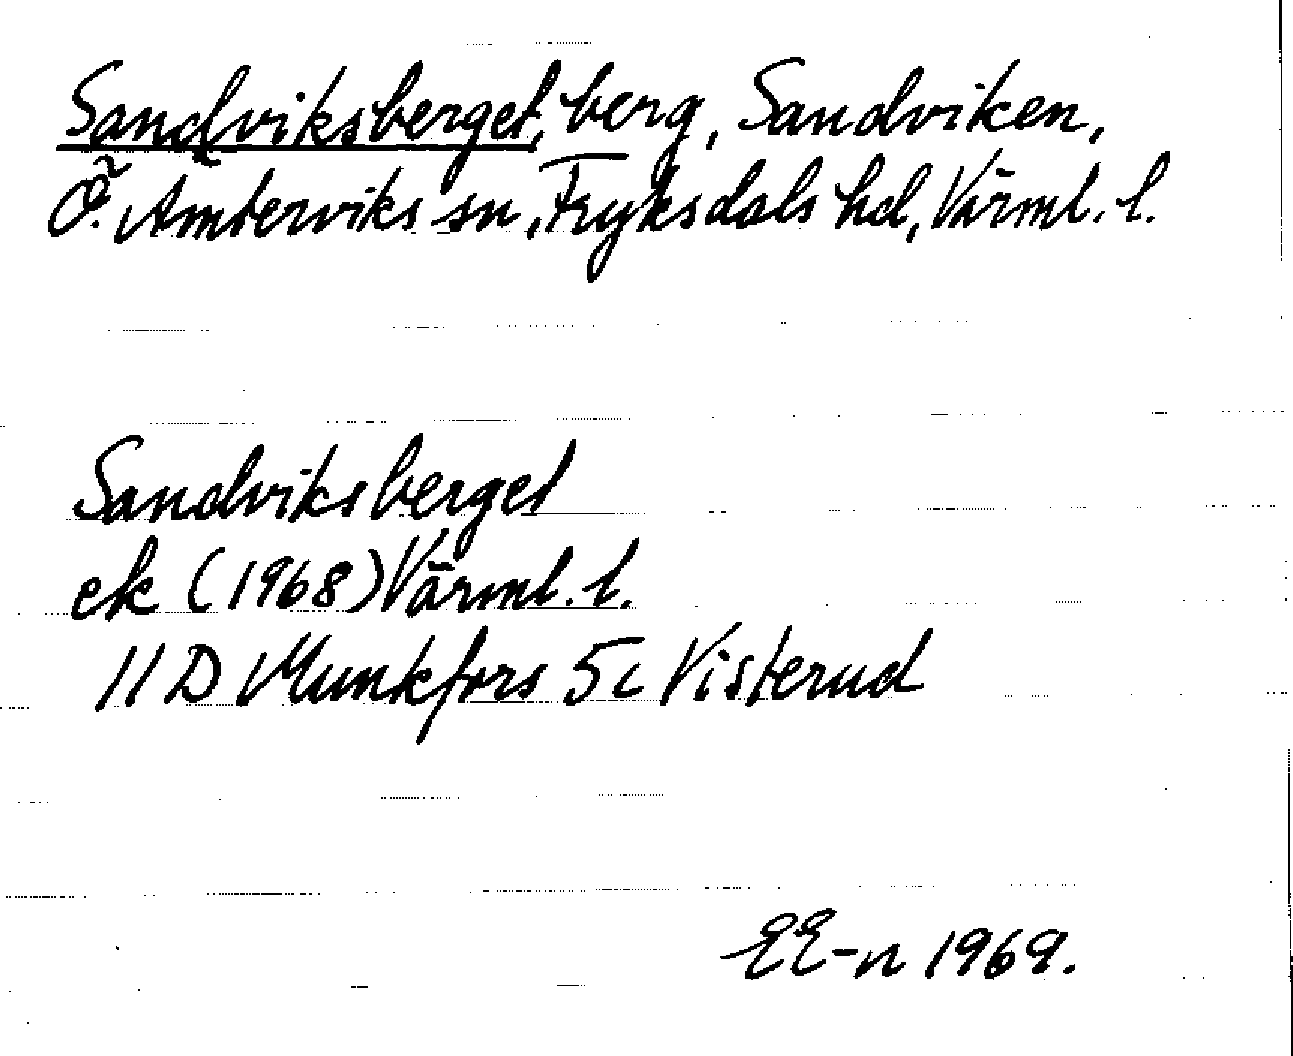 Sandviksberget, berg, Sandviken,
Ö. Ämterviks sn, Fryksdals hd, Värml. l.
Sandviksberget
ek (1968) Värml. l.
11 D Munkfors 5c Visterud
EE-n 1969.